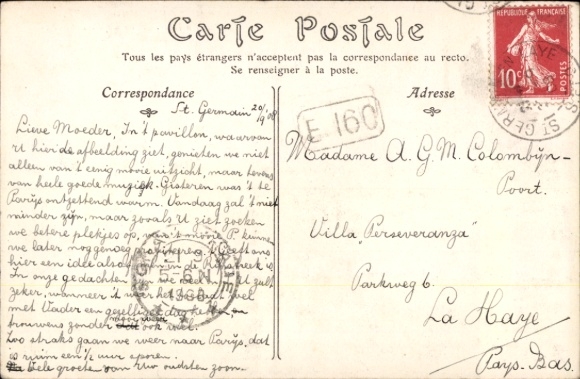 Carte Postale
Tous les pays étrangers n'acceptent pas la correspondance au recto.
Se renseigner à la poste.
Correspondance
St. Germain 20/9 08
Lieve Moeder, In 't pavillon, waarvan
U hier de afbeelding ziet, genieten we niet
alleen van 't eenig mooie uitzicht, maar tevens
van heele goede muziek. Gisteren was 't te
Parijs ontzettend warm. Vandaag zal 't niet
minder zijn, maar zooals U ziet zoeken
we betere plekjes op, van 't mooie P. kunnen
we later nog genoeg profiteeren. 't Geeft ons
hier een idee alsof
In onze gedachten
zeker, wanneer it weer het toelaat wel
met Vader een gezellige dag hebben en
trouwens zonder mooi weer ook wel.
Zoo straks gaan we weer naar Parijs, dat
is ruim een ½ uur sporen.
Vele groeten van Uw oudsten zoon.
Adresse
REPUBLIQUE FRANÇAISE
10c
ST GERMAIN
E 160
Madame A. G. M. Colombijn-
Poort.
Villa "Perseveranza"
Parkweg 6.
La Haye
Pays-Bas.
5-6 N
1908